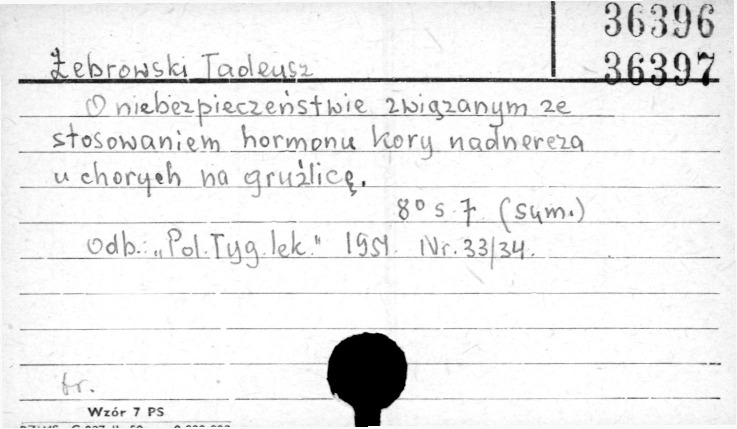 36396
36397
Żebrowski Tadeusz
O niebezpieczeństwie związanym ze
stosowaniem hormonu kory nadnercza
u chorych na gruźlicę.
8° s. 7. (sum.)
Odb.: „Pol. Tyg. lek." 1951. Nr. 33/34.
br.
Wzór 7 PS